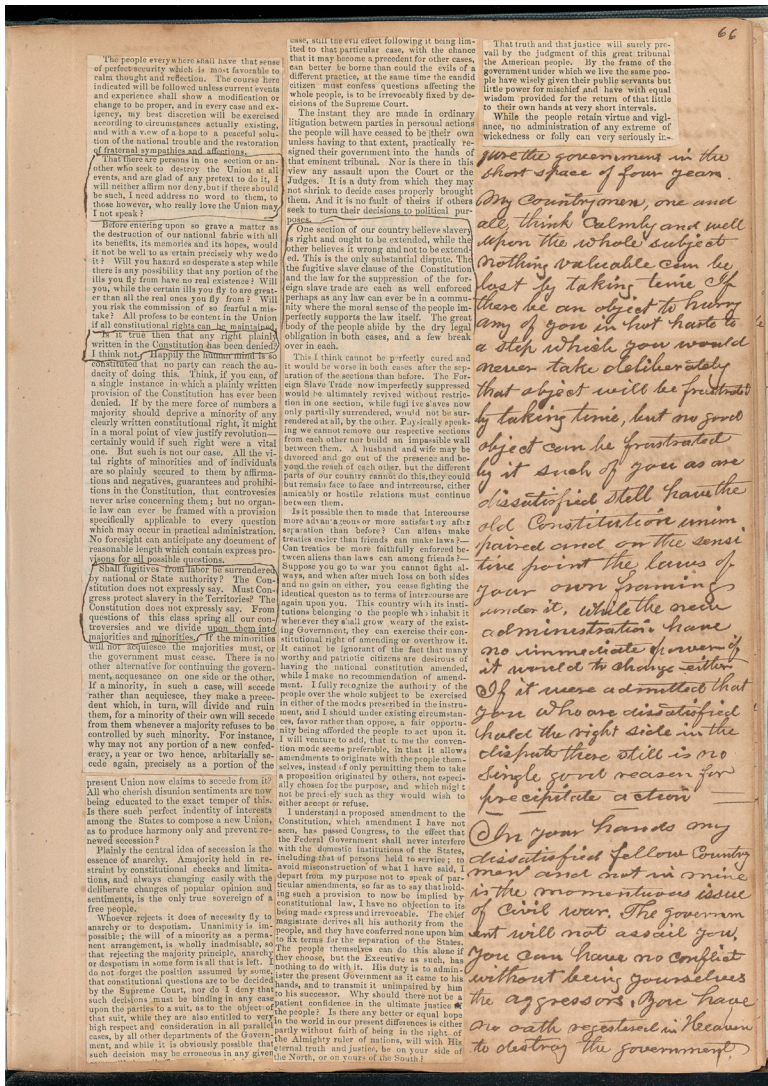 66
The people everywhere shall have that sense
of perfect security which is most favorable to
calm thought and reflection. The course here
indicated will be followed unless current events
and experience shall show a modification or
change to be proper, and in every case and ex-
igency, my best discretion will be exercised
according to circumstances actually existing,
and with a view of a hope to a peaceful solu-
tion of the national trouble and the restoration
of fraternal sympathies and affections.
That there are persons in one section or an-
other who seek to destroy the Union at all
events, and are glad of any pretext to do it, I
will neither affirm nor deny, but if there should
be such, I need address no word to them, to
those however, who really love the Union may
I not speak?
Before entering upon so grave a matter as
the destruction of our national fabric with all
its benefits, its memories and its hopes, would
it not be well to as certain precisely why we do
it? Will you hazard so desperate a step while
there is any possibility that any portion of the
ills you fly from have no real existence? Will
you, while the certain ills you fly to are great-
er than all the real ones you fly from? Will
you risk the commission of so fearful a mis-
take? All profess to be content in the Union
if all constitutional rights can be maintained.
Is it true then that any right plainly
written in the Constitution has been denied?
I think not. Happily the human mind is so
constituted that no party can reach the au-
dacity of doing this. Think, if you can, of
a single instance in which a plainly written
provision of the Constitution has ever been
denied. If by the mere force of numbers a
majority should deprive a minority of any
clearly written constitutional right, it might
in a moral point of view justify revolution—
certainly would if such right were a vital
one. But such is not our case. All the vi-
tal rights of minorities and of individuals
are so plainly secured to them by affirma-
tions and negatives, guarantees and prohibi-
tions in the Constitution, that controvesies
never arise concerning them; but no organ-
ic law can ever be framed with a provision
specifically applicable to every question
which may occur in practical administration.
No foresight can anticipate any document of
reasonable length which contain express pro-
visons for all possible questions.
Shall fugitives from labor be surrendered
by national or State authority? The Con-
stitution does not expressly say. Must Con-
gress protect slavery in the Territories? The
Constitution does not expressly say. From
questions of this class spring all our con-
troversies and we divide upon them into
majorities and minorities. If the minorities
will not acquiesce the majorities must, or
the government must cease. There is no
other alternative for continuing the govern-
ment, acquesance on one side or the other.
If a minority, in such a case, will secede
rather than acquiesce, they make a prece-
dent which, in turn, will divide and ruin
them, for a minority of their own will secede
from them whenever a majority refuses to be
controlled by such minority. For instance,
why may not any portion of a new confed-
eracy, a year or two hence, arbitarially se-
cede again, precisely as a portion of the
present Union now claims to secede from it?
All who cherish disunion sentiments are now
being educated to the exact temper of this.
Is there such perfect indentity of interests
among the States to compose a new Union,
as to produce harmony only and prevent re-
newed secession?
Plainly the central idea of secession is the
essence of anarchy. Amajority held in re-
straint by constitutional checks and limita-
tions, and always changing easily with the
deliberate changes of popular opinion and
sentiments, is the only true sovereign of a
free people.
Whoever rejects it does of necessity fly to
anarchy or to despotism. Unanimity is im-
possible; the will of a minority as a perma-
nent arrangement, is wholly inadmisable, so
that rejecting the majority principle, anarchy
or despotism in some form is all that is left. I
do not forget the position assumed by some,
that constitutional questions are to be decided
by the Supreme Court, nor do I deny that
such decisions must be binding in any case
upon the parties to a suit, as to the object of
that suit, while they are also entitled to very
high respect and consideration in all parallel
cases, by all other departments of the Govern-
ment, and while it is obviously possible that
such decision may be erroneous in any given
case, still the evil effect following it being lim-
ited to that particular case, with the chance
that it may become a precedent for other cases,
can better be borne than could the evils of a
different practice, at the same time the candid
citizen must confess questions affecting the
whole people, is to be irrevocably fixed by de-
cisions of the Supreme Court.
The instant they are made in ordinary
litigation between parties in personal actions
the people will have ceased to be their own
unless having to that extent, practically re-
signed their government into the hands of
that eminent tribunal. Nor is there in this
view any assault upon the Court or the
Judges. It is a duty from which they may
not shrink to decide cases properly brought
them. And it is no fault of theirs if others
seek to turn their decisions to political pur-
poses.
One section of our country believe slavery
is right and ought to be extended, while the
other believes it wrong and not to be extend-
ed. This is the only substantial dispute. The
fugitive slave clause of the Constitution
and the law for the suppression of the for-
eign slave trade are each as well enforced
perhaps as any law can ever be in a commu-
nity where the moral sense of the people im-
perfectly supports the law itself. The great
body of the people abide by the dry legal
obligation in both cases, and a few break
over in each.
This I think cannot be perfectly cured and
it would be worse in both cases after the sep-
aration of the sections than before. The For-
eign Slave Trade now imperfectly suppressed
would be ultimately revived without restric-
tion in one section, while fugitive slaves now
only partially surrendered, would not be sur-
rendered at all, by the other. Physically speak-
ing we cannot remove our respective sections
from each other nor build an impassible wall
between them. A husband and wife may be
divorced and go out of the presence and be-
yond the reach of each other, but the different
parts of our country cannot do this, they could
but remain face to face and intercourse, either
amicably or hostile relations must continue
between them.
Is it possible then to made that intercourse
more advantageous or more satisfactory after
separation than before? Can aliens make
treaties easier than friends can make laws?—
Can treaties be more faithfully enforced be-
tween aliens than laws can among friends?—
Suppose you go to war you cannot fight al-
ways, and when after much loss on both sides
and no gain on either, you cease fighting the
identical queston as to terms of intercourse are
again upon you. This country with its insti-
tutions belonging to the people who inhabit it
wherever they shall grow weary of the exist-
ing Government, they can exercise their con-
stitutional right of amending or overthrow it.
It cannot be ignorant of the fact that many
worthy and patriotic citizens are desirous of
having the national constitution amended,
while I make no recommendation of amend-
ment. I fully recognize the authority of the
people over the whole subject to be exercised
in either of the modes prescribed in the instru-
ment, and I should under existing circumstan-
ces, favor rather than oppose, a fair opportu-
nity being afforded the people to act upon it.
I will venture to add, that to me the conven-
tion mode seems preferable, in that it allows
amendments to originate with the people them-
selves, instead of only permitting them to take
a proposition originated by others, not especi-
ally chosen for the purpose, and which might
not be precisely such as they would wish to
either accept or refuse.
I understand a proposed amendment to the
Constitution, which amendment I have not
seen, has passed Congress, to the effect that
the Federal Government shall never interfere
with the domestic institutions of the States,
including that of persons held to service; to
avoid misconstruction of what I have said, I
depart from my purpose not to speak of par-
ticular amendments, so far as to say that hold-
ing such a provision to now be implied by
constitutional law, I have no objection to its
being made express and irrevocable. The chief
magistrate derives all his authority from the
people, and they have conferred none upon him
to fix terms for the separation of the States.
The people themselves can do this alone if
they choose, but the Executive as such, has
nothing to do with it. His duty is to admin-
ister the present Government as it came to his
hands, and to transmit it unimpaired by him
to his successor. Why should there not be a
patient confidence in the ultimate justice of
the people? Is there any better or equal hope
in the world in our present differences is either
partly without faith of being in the right, of
the Almighty ruler of nations, will with His
eternal truth and justice, be on your side of
the North, or on yours of the South?
That truth and that justice will surely pre-
vail by the judgment of this great tribunal
the American people. By the frame of the
government under which we live the same peo-
ple have wisely given their public servants but
little power for mischief and have with equal
wisdom provided for the return of that little
to their own hands at very short intervals.
While the people retain virtue and vigil-
ance, no administration of any extreme of
wickedness or folly can very seriously in-
jure the government in the
short space of four years.
My Countrymen, one and
all, think Calmly and well
upon the whole subject
nothing valuable can be
lost by taking time If
there be an object to hurry
any of you in hot haste to
a step which you would
never take deliberately
that object will be frustrated
by taking time, but no good
object can be frustrated
by it such of you as are
dissatisfied still have the
old Constitution unim
paired and on the sensi
tive point the laws of
your own framing
under it, while the new
administration have
no immediate power if
it would to change either
If it were admitted that
you who are dissatisfied
hold the right side in the
dispute there still is no
single good reason for
precipitate action
In your hands my
dissatisfied fellow Country
men and not in mine
is the momentuous issue
of Civil war. The governm
ent will not assail you,
you can have no conflict
without being yourselves
the aggressors. You have
no oath registered in Heaven
to destroy the government